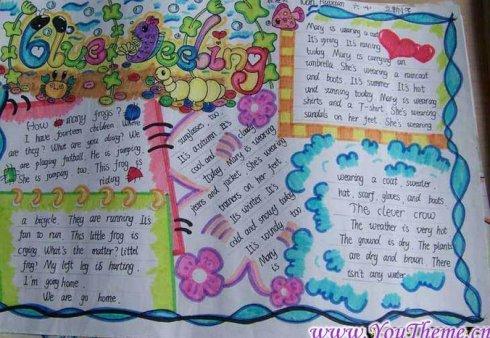 How many frogs?
I have fourteen children. Where
are they? What are you doing? We
are playing football. He is jumping.
She is jumping too. This frog is
riding
a bicycle. They are running. It's
fun to run. This little frog is
crying. What's the matter? Littel
frog? My left leg is hurting.
I'm going home.
We are go home.
sunglasses, too.
It's autumn. It's
cool and cloudy
today. Mary is wearing
jeans and jacket. She's wearing
trainers on her feet.
It's winter. It's
cold and snowy today.
It's windy, too.
Mary is
Mary is wearing a
It's spring. It's raining
today. Mary is carrying an
umbrella. She's wearing a raincoat
and boots. It's summer. It's hot
and sunny today. Mary is wearing
shorts and a T-shirt. She's wearing
sandals on her feet. She's wearing
wearing a coat, sweater,
hat, scarf, gloves and boots.
The clever crow
The weather is very hot.
The ground is dry. The plants
are dry and brown. There
isn't any water.
www.YouTheme.cn